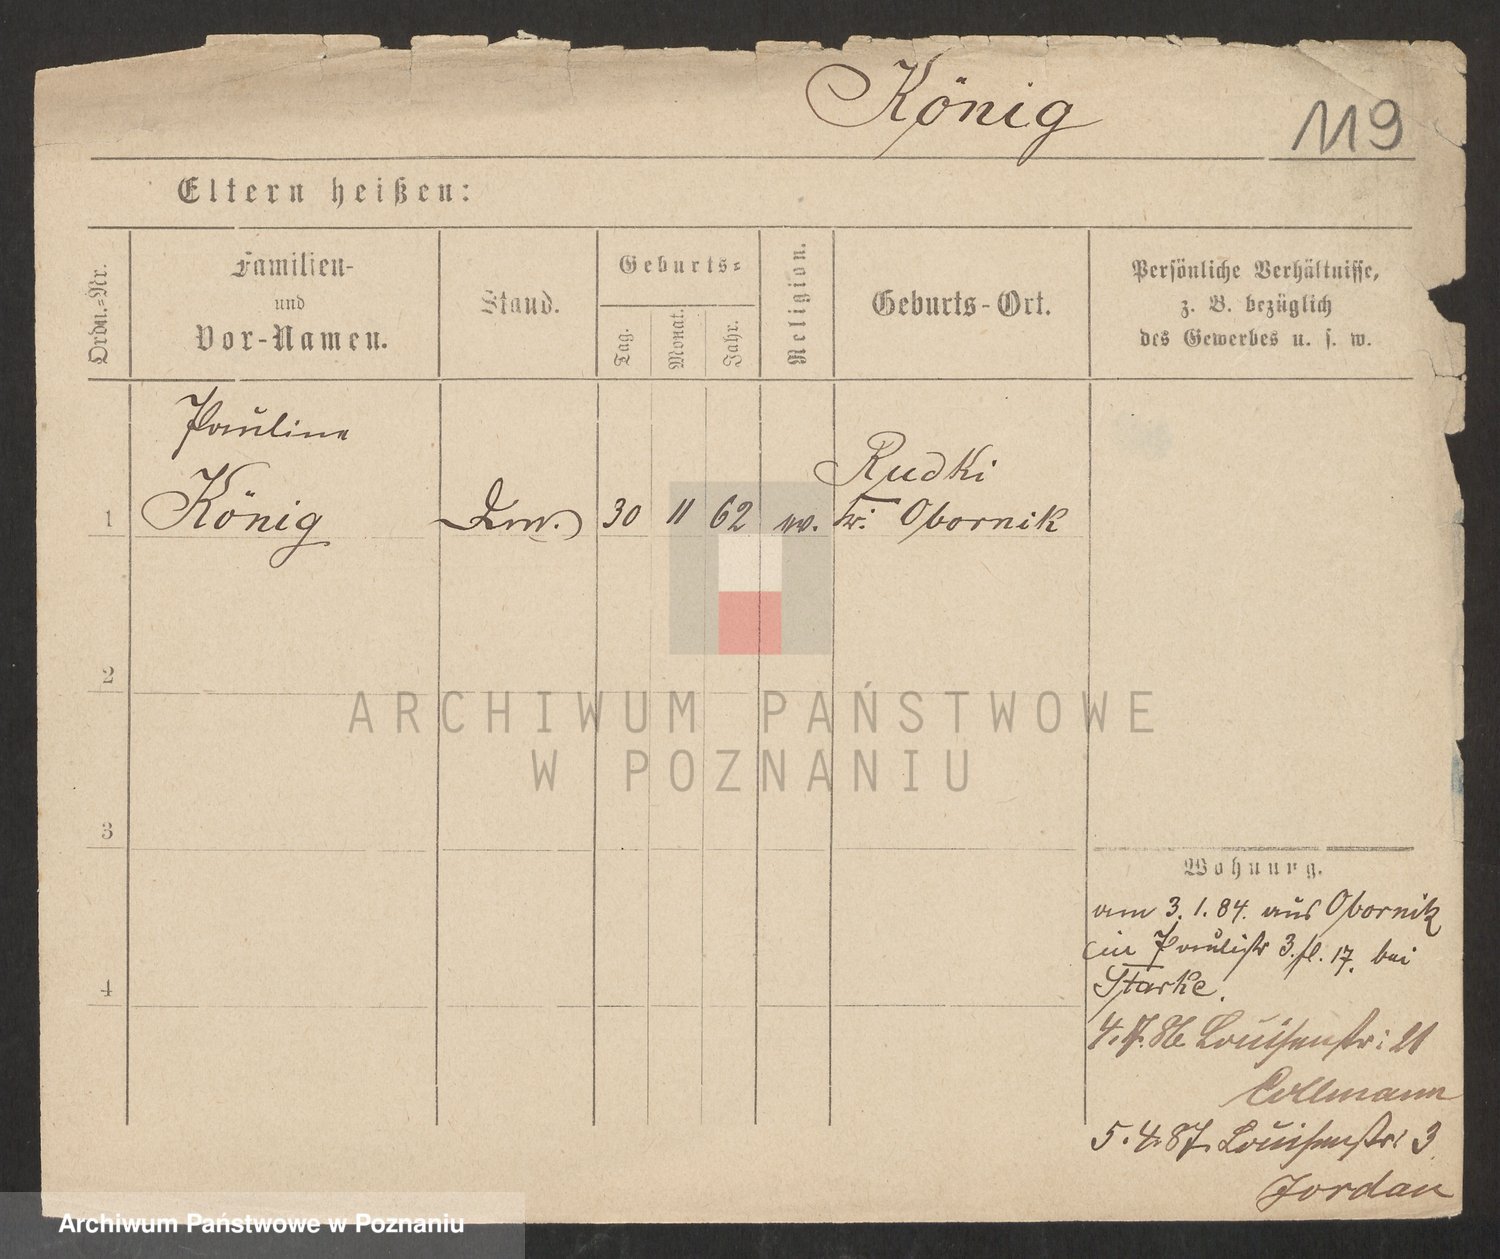 König
119
Eltern heißen:
Ordn.-Nr.
Familien-
und
Vor-Namen.
Stand.
Geburts-
Tag.
Monat.
Jahr.
Religion.
Geburts-Ort.
Persönliche Verhältnisse,
z. B. bezüglich
des Gewerbes u. s. w.
Pauline
König
1
30 11 62
Rudki
Kr. Obornik
2
3
4
Wohnung.
am 3. 1. 84. aus Obornik
in Paulistr 3. fl. 17. bei
Starke.
4. 7. 86 Louisenstr: 21
Collmann
5. 4. 87. Louisenstr: 3
Jordan
ARCHIWUM PAŃSTWOWE
W POZNANIU
Archiwum Państwowe w Poznaniu